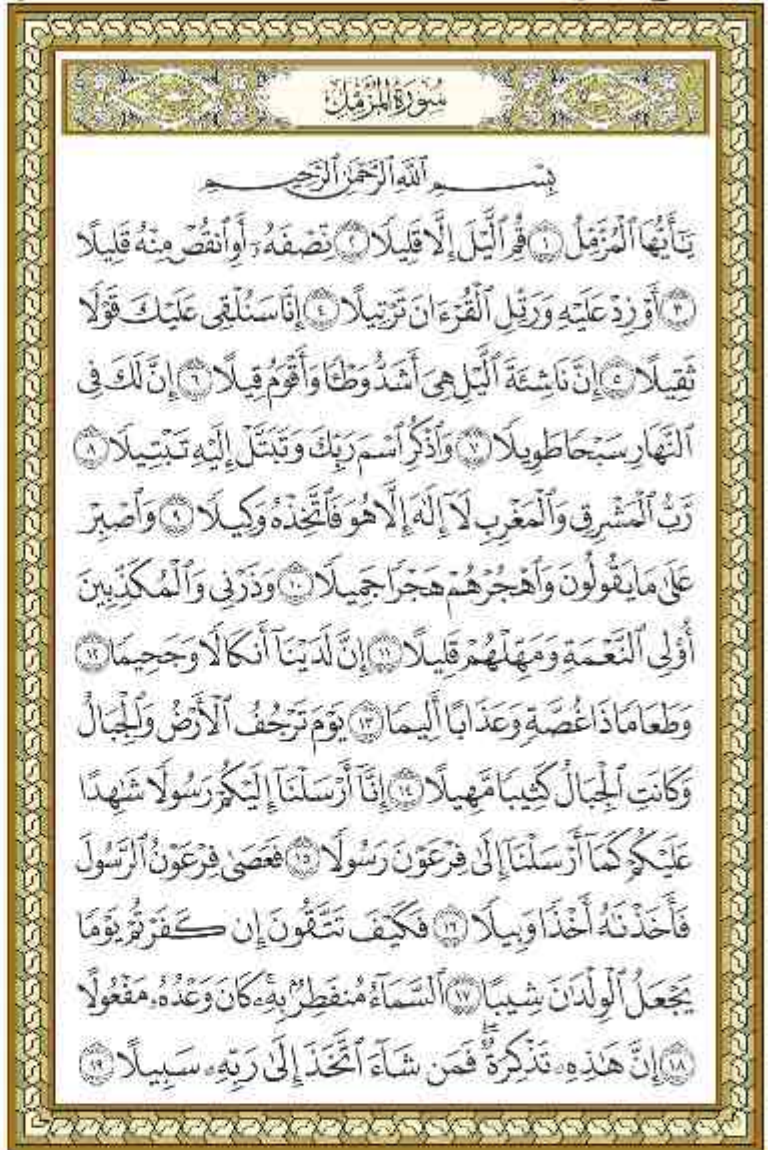 سُورَةُ الْمُزَّمِّلِ
بِسْمِ ٱللَّهِ ٱلرَّحْمَٰنِ ٱلرَّحِيمِ
يَٰٓأَيُّهَا ٱلْمُزَّمِّلُ ١ قُمِ ٱلَّيْلَ إِلَّا قَلِيلًا ٢ نِّصْفَهُۥٓ أَوِ ٱنقُصْ مِنْهُ قَلِيلًا
٣ أَوْ زِدْ عَلَيْهِ وَرَتِّلِ ٱلْقُرْءَانَ تَرْتِيلًا ٤ إِنَّا سَنُلْقِى عَلَيْكَ قَوْلًا
ثَقِيلًا ٥ إِنَّ نَاشِئَةَ ٱلَّيْلِ هِىَ أَشَدُّ وَطْـًٔا وَأَقْوَمُ قِيلًا ٦ إِنَّ لَكَ فِى
ٱلنَّهَارِ سَبْحًا طَوِيلًا ٧ وَٱذْكُرِ ٱسْمَ رَبِّكَ وَتَبَتَّلْ إِلَيْهِ تَبْتِيلًا ٨
رَّبُّ ٱلْمَشْرِقِ وَٱلْمَغْرِبِ لَآ إِلَٰهَ إِلَّا هُوَ فَٱتَّخِذْهُ وَكِيلًا ٩ وَٱصْبِرْ
عَلَىٰ مَا يَقُولُونَ وَٱهْجُرْهُمْ هَجْرًا جَمِيلًا ١٠ وَذَرْنِى وَٱلْمُكَذِّبِينَ
أُو۟لِى ٱلنَّعْمَةِ وَمَهِّلْهُمْ قَلِيلًا ١١ إِنَّ لَدَيْنَآ أَنكَالًا وَجَحِيمًا ١٢
وَطَعَامًا ذَا غُصَّةٍ وَعَذَابًا أَلِيمًا ١٣ يَوْمَ تَرْجُفُ ٱلْأَرْضُ وَٱلْجِبَالُ
وَكَانَتِ ٱلْجِبَالُ كَثِيبًا مَّهِيلًا ١٤ إِنَّآ أَرْسَلْنَآ إِلَيْكُمْ رَسُولًا شَٰهِدًا
عَلَيْكُمْ كَمَآ أَرْسَلْنَآ إِلَىٰ فِرْعَوْنَ رَسُولًا ١٥ فَعَصَىٰ فِرْعَوْنُ ٱلرَّسُولَ
فَأَخَذْنَٰهُ أَخْذًا وَبِيلًا ١٦ فَكَيْفَ تَتَّقُونَ إِن كَفَرْتُمْ يَوْمًا
يَجْعَلُ ٱلْوِلْدَٰنَ شِيبًا ١٧ ٱلسَّمَآءُ مُنفَطِرٌۢ بِهِۦ ۚ كَانَ وَعْدُهُۥ مَفْعُولًا
١٨ إِنَّ هَٰذِهِۦ تَذْكِرَةٌ ۖ فَمَن شَآءَ ٱتَّخَذَ إِلَىٰ رَبِّهِۦ سَبِيلًا ١٩